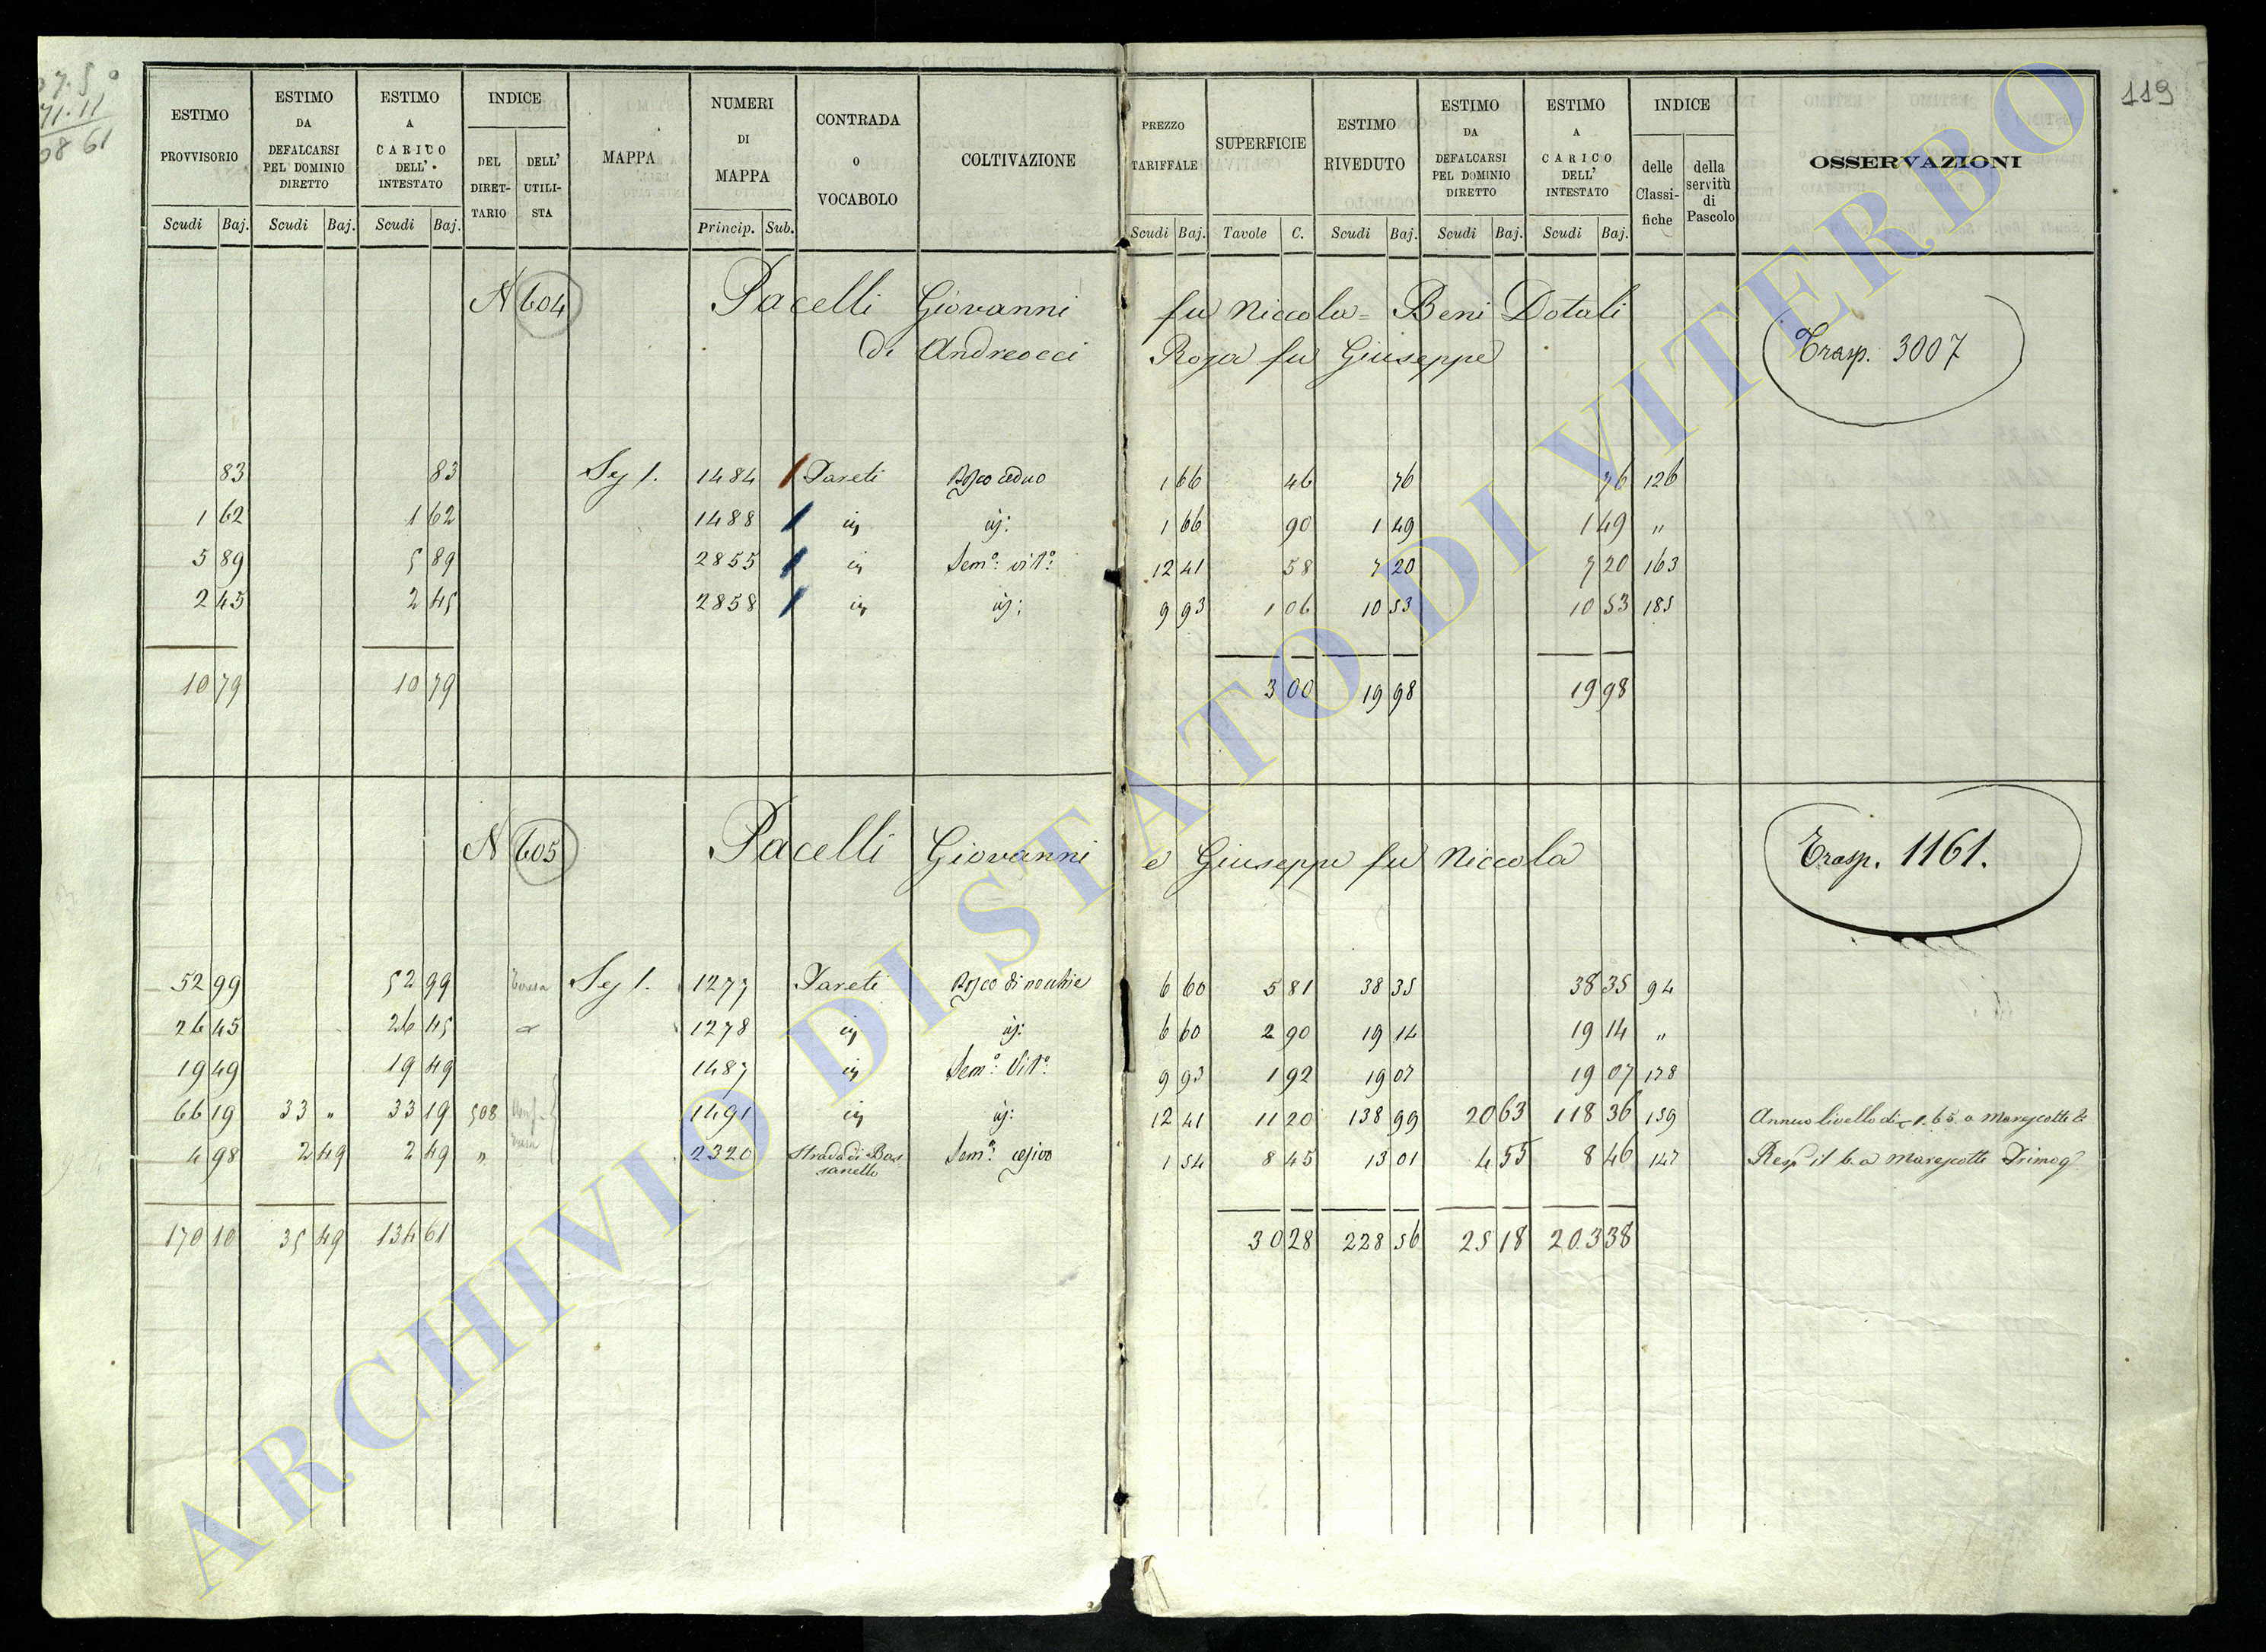 119
71.11
ESTIMO PROVVISORIO
ESTIMO DA DEFALCARSI PEL DOMINIO DIRETTO
ESTIMO A CARICO DELL' INTESTATO
INDICE
DEL DIRETTARIO
DELL' UTILISTA
MAPPA
NUMERI DI MAPPA
CONTRADA O VOCABOLO
COLTIVAZIONE
PREZZO TARIFFALE
SUPERFICIE
ESTIMO RIVEDUTO
ESTIMO DA DEFALCARSI PEL DOMINIO DIRETTO
ESTIMO A CARICO DELL' INTESTATO
INDICE
delle Classifiche
della servitù di Pascolo
OSSERVAZIONI
Scudi Baj. Scudi Baj. Scudi Baj. Princip. Sub. Scudi Baj. Tavole C. Scudi Baj. Scudi Baj. Scudi Baj.
N 604 Pacelli Giovanni fu Niccola = Beni Dotali
di Andreocci Rosa fu Giuseppe
Trasp. 3007
83 83 Sez 1. 1484 Pareti Bosco ceduo 1 66 46 76 76 126
1 62 1 62 1488 1 66 90 1 49 1 49 "
5 89 5 89 2855 Semo: vito: 12 41 58 7 20 7 20 163
2 45 2 45 2858 9 93 1 06 10 53 10 53 185
10 79 10 79 3 00 19 98 19 98
N 605 Pacelli Giovanni e Giuseppe fu Niccola
Trasp. 1161.
52 99 52 99 Sez 1. 1277 Pareti Bosco di nocchie 6 60 5 81 38 35 38 35 94
26 45 26 45 1278 6 60 2 90 19 14 19 14 "
19 49 19 49 1487 Semo: Vito: 9 93 1 92 19 07 19 07 178
66 19 33 " 33 19 508 1491 12 41 11 20 138 99 20 63 118 36 159 Annuo livello di 1.65 a Marescotti
4 98 2 49 2 49 " 2320 Strada di Bassanello Semo: 1 54 8 45 13 01 4 55 8 46 147 a Marescotti
170 10 35 49 134 61 30 28 228 56 25 18 203 38
ARCHIVIO DI STATO DI VITERBO